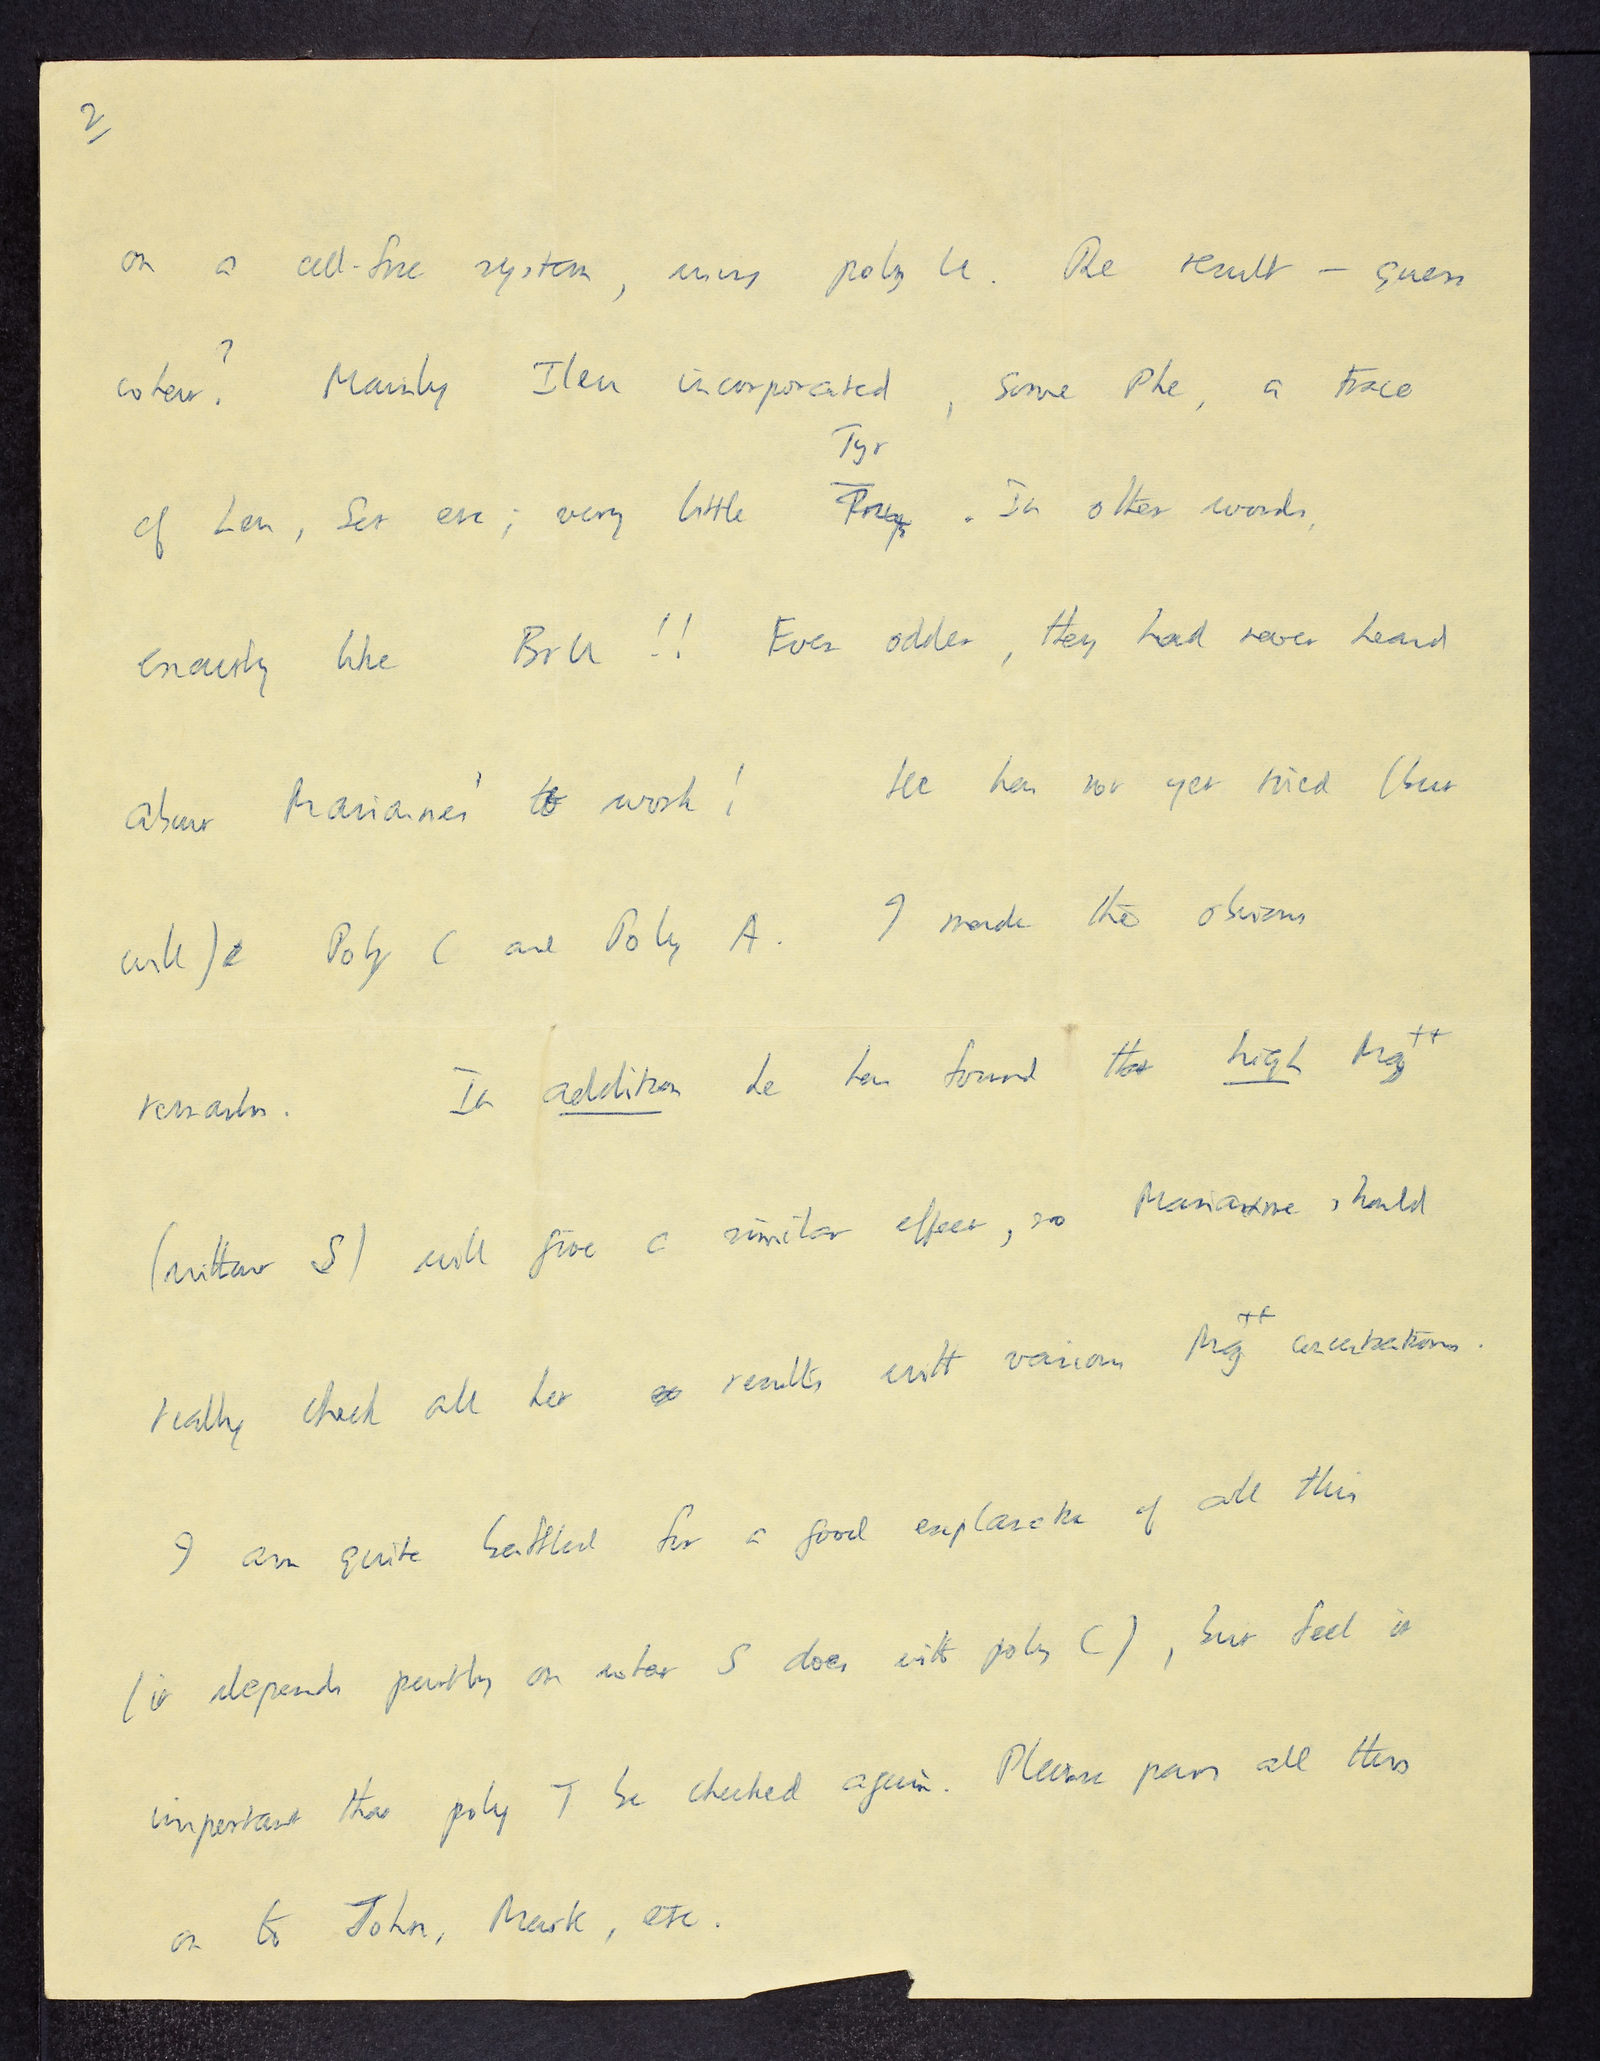 2/
on a cell-free system, using poly U. The result — guess
what? Mainly Ileu incorporated, some Phe, a trace
Tyr
of Leu, Ser etc; very little . In other words,
exactly like BrU!! Even odder, they had never heard
about Marianne's work! He has not yet tried (but
will) Poly C and Poly A. I made the obvious
remarks. In addition he has found that high Mg++
(without S) will give a similar effect, so Marianne should
really check all her results with various Mg++ concentrations.
I am quite baffled for a good explanation of all this
(it depends partly on what S does with poly C), but feel it
important that poly T be checked again. Please pass all this
on to John, Mark, etc.